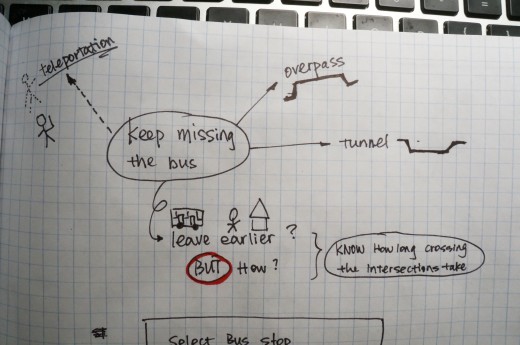 teleportation
overpass
Keep missing
the bus
tunnel
leave earlier ?
BUT How?
KNOW How long crossing
the intersections take
Select Bus stop